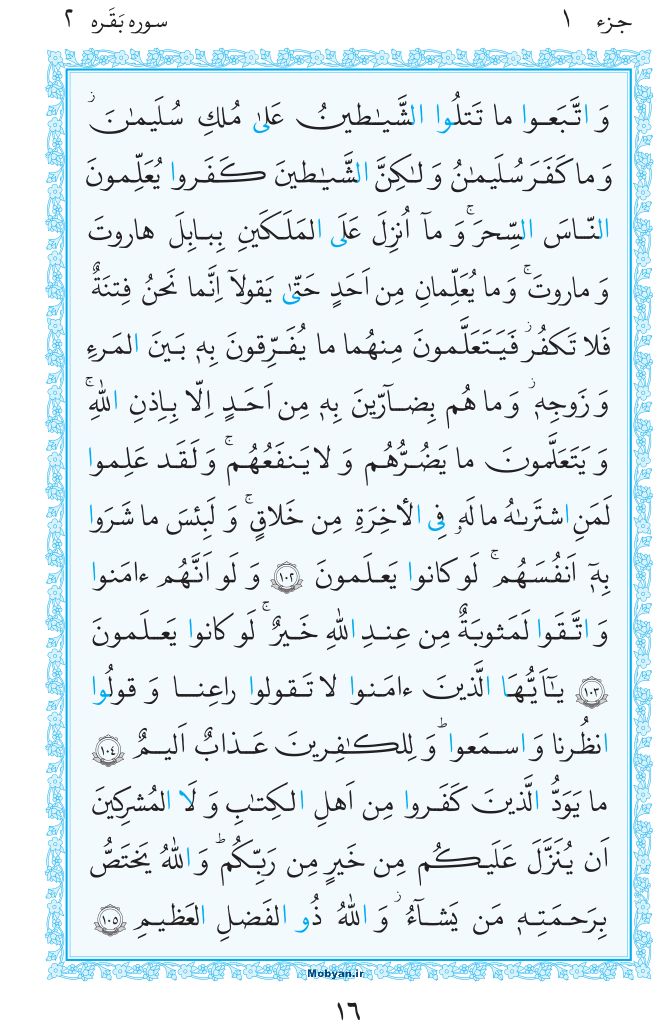 جزء ١
سوره بَقَره ٢
وَ اتَّبَعوا ما تَتلُوا الشَّيـٰطينُ عَلىٰ مُلكِ سُلَيمـٰنَ ۖ
وَ ما كَفَرَ سُلَيمـٰنُ وَ لـٰكِنَّ الشَّيـٰطينَ كَفَروا يُعَلِّمونَ
النّاسَ السِّحرَ ۚ وَ مآ اُنزِلَ عَلَى المَلَكَينِ بِبابِلَ هاروتَ
وَ ماروتَ ۚ وَ ما يُعَلِّمانِ مِن اَحَدٍ حَتّىٰ يَقولآ اِنَّما نَحنُ فِتنَةٌ
فَلا تَكفُر ۖ فَيَتَعَلَّمونَ مِنهُما ما يُفَرِّقونَ بِهٖ بَينَ المَرءِ
وَ زَوجِهٖ ۚ وَ ما هُم بِضآرّينَ بِهٖ مِن اَحَدٍ اِلّا بِاِذنِ اللهِ ۚ
وَ يَتَعَلَّمونَ ما يَضُرُّهُم وَ لا يَنفَعُهُم ۚ وَ لَقَد عَلِموا
لَمَنِ اشتَرىٰهُ ما لَهٗ فِى الأخِرَةِ مِن خَلاقٍ ۚ وَ لَبِئسَ ما شَرَوا
بِهٖٓ اَنفُسَهُم ۚ لَو كانوا يَعلَمونَ ١٠٢ وَ لَو اَنَّهُم ءامَنوا
وَ اتَّقَوا لَمَثوبَةٌ مِن عِندِ اللهِ خَيرٌ ۚ لَو كانوا يَعلَمونَ
١٠٣ يـٰٓاَيُّهَا الَّذينَ ءامَنوا لا تَقولوا راعِنا وَ قولُوا
انظُرنا وَ اسمَعوا ۗ وَ لِلكـٰفِرينَ عَذابٌ اَليمٌ ١٠٤
ما يَوَدُّ الَّذينَ كَفَروا مِن اَهلِ الكِتـٰبِ وَ لَا المُشرِكينَ
اَن يُنَزَّلَ عَلَيكُم مِن خَيرٍ مِن رَبِّكُم ۗ وَ اللهُ يَختَصُّ
بِرَحمَتِهٖ مَن يَشآءُ ۚ وَ اللهُ ذُو الفَضلِ العَظيمِ ١٠٥
Mobyan.ir
١٦